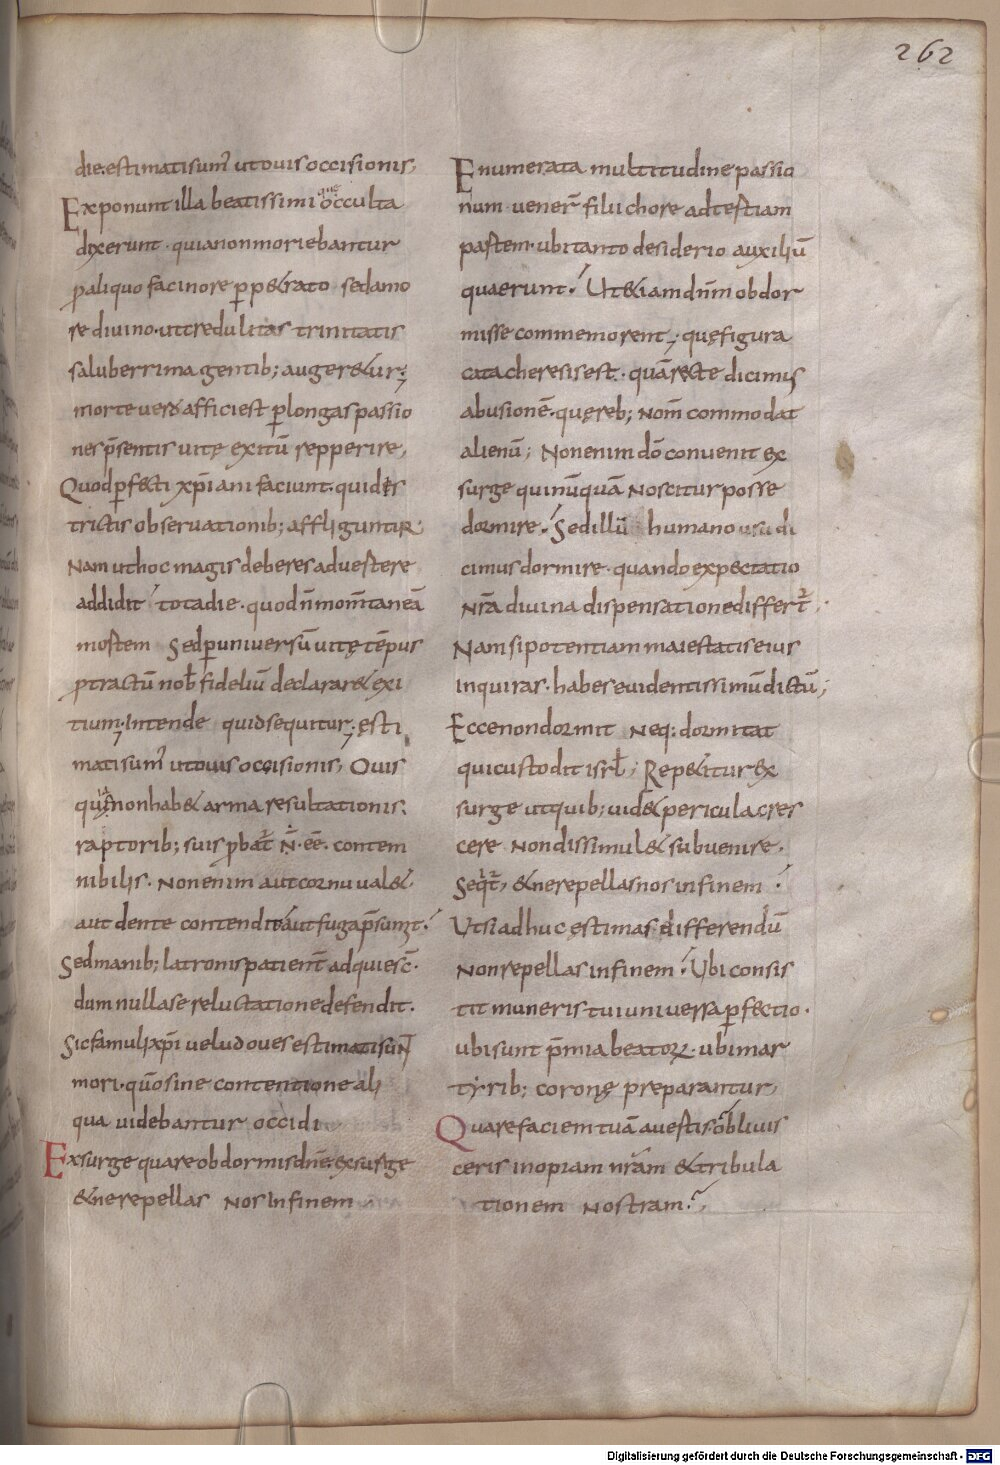 262
die. estimati sumꝰ ut oves occisionis,
Exponunt illa beatissimi que occulta
dixerunt · quia non moriebantur
ꝓ aliquo facinore ꝑpetrato sed amo
re divino · ut credulitas trinitatis
saluberrima gentib; augeretur;
morte vero affici est ꝑ longas passio
nes p̄sentis vitę exitū repperire,
Quod ꝑfecti xp̄iani faciunt. qui dis
trictis observationib; affliguntur
Nam ut hoc magis deberes advertere
addidit tota die · quod n̄ momtaneā
mortem Sed ꝑ universū vitę tēpus
ꝓtractū nob̄ fideliū declararet exi
tium; Intende quid sequitur; ęsti
mati sumꝰ ut oves occisionis, Ovis
quia non habet arma resultationis.
raptorib; suis ꝓbat̄ N̄ · ee᷒. contem
nibilis. Non enim aut cornu valet
aut dente contendit aut fuga p̄sumit.
Sed manib; latronis patient̄ adquiesc̄.
dum nulla se reluctatione defendit.
Sic famuli xp̄i velud oves estimati sunt
mori · quō sine contentione ali
qua videbantur occidi,
Exsurge quare obdormis dn̄e. exsurge
& ne repellas nos in finem
Enumerata multitudine passio
num · vener̄ filii chore ad testiam
partem · ubi tanto desiderio auxiliū
quaerunt. Ut etiam dn̄m obdor
misse commemorent; quę figura
catacheresis est · quā recte dicimus
abusionē. quę reb; nom̄ commodat
alienū; Non enim dō convenit ex
surge qui nūquā noscitur posse
dormire. Sed illū humano usu di
cimus dormire · quando expectatio
nr̄a divina dispensatione differt̄.
Nam si potentiam maiestatis eius
inquiras · habes evidentissimū dictū;
Ecce non dormit neq: dormitat
qui custodit isrł; Repetitur ex
surge ut quib; videt pericula cres
cere non dissimulet subvenire.
Seqt̄, & ne repellas nos in finem.
Ut si adhuc ęstimas differendū
non repellas in finem. Ubi consis
tit muneris tui universa ꝑfectio.
ubi sunt p̄mia beatoꝝ · ubi mar
tyrib; coronę preparantur,
Quare faciem tuā avertis oblivis
ceris inopiam nr̄am & tribula
tionem nostram.
Digitalisierung gefördert durch die Deutsche Forschungsgemeinschaft - DFG